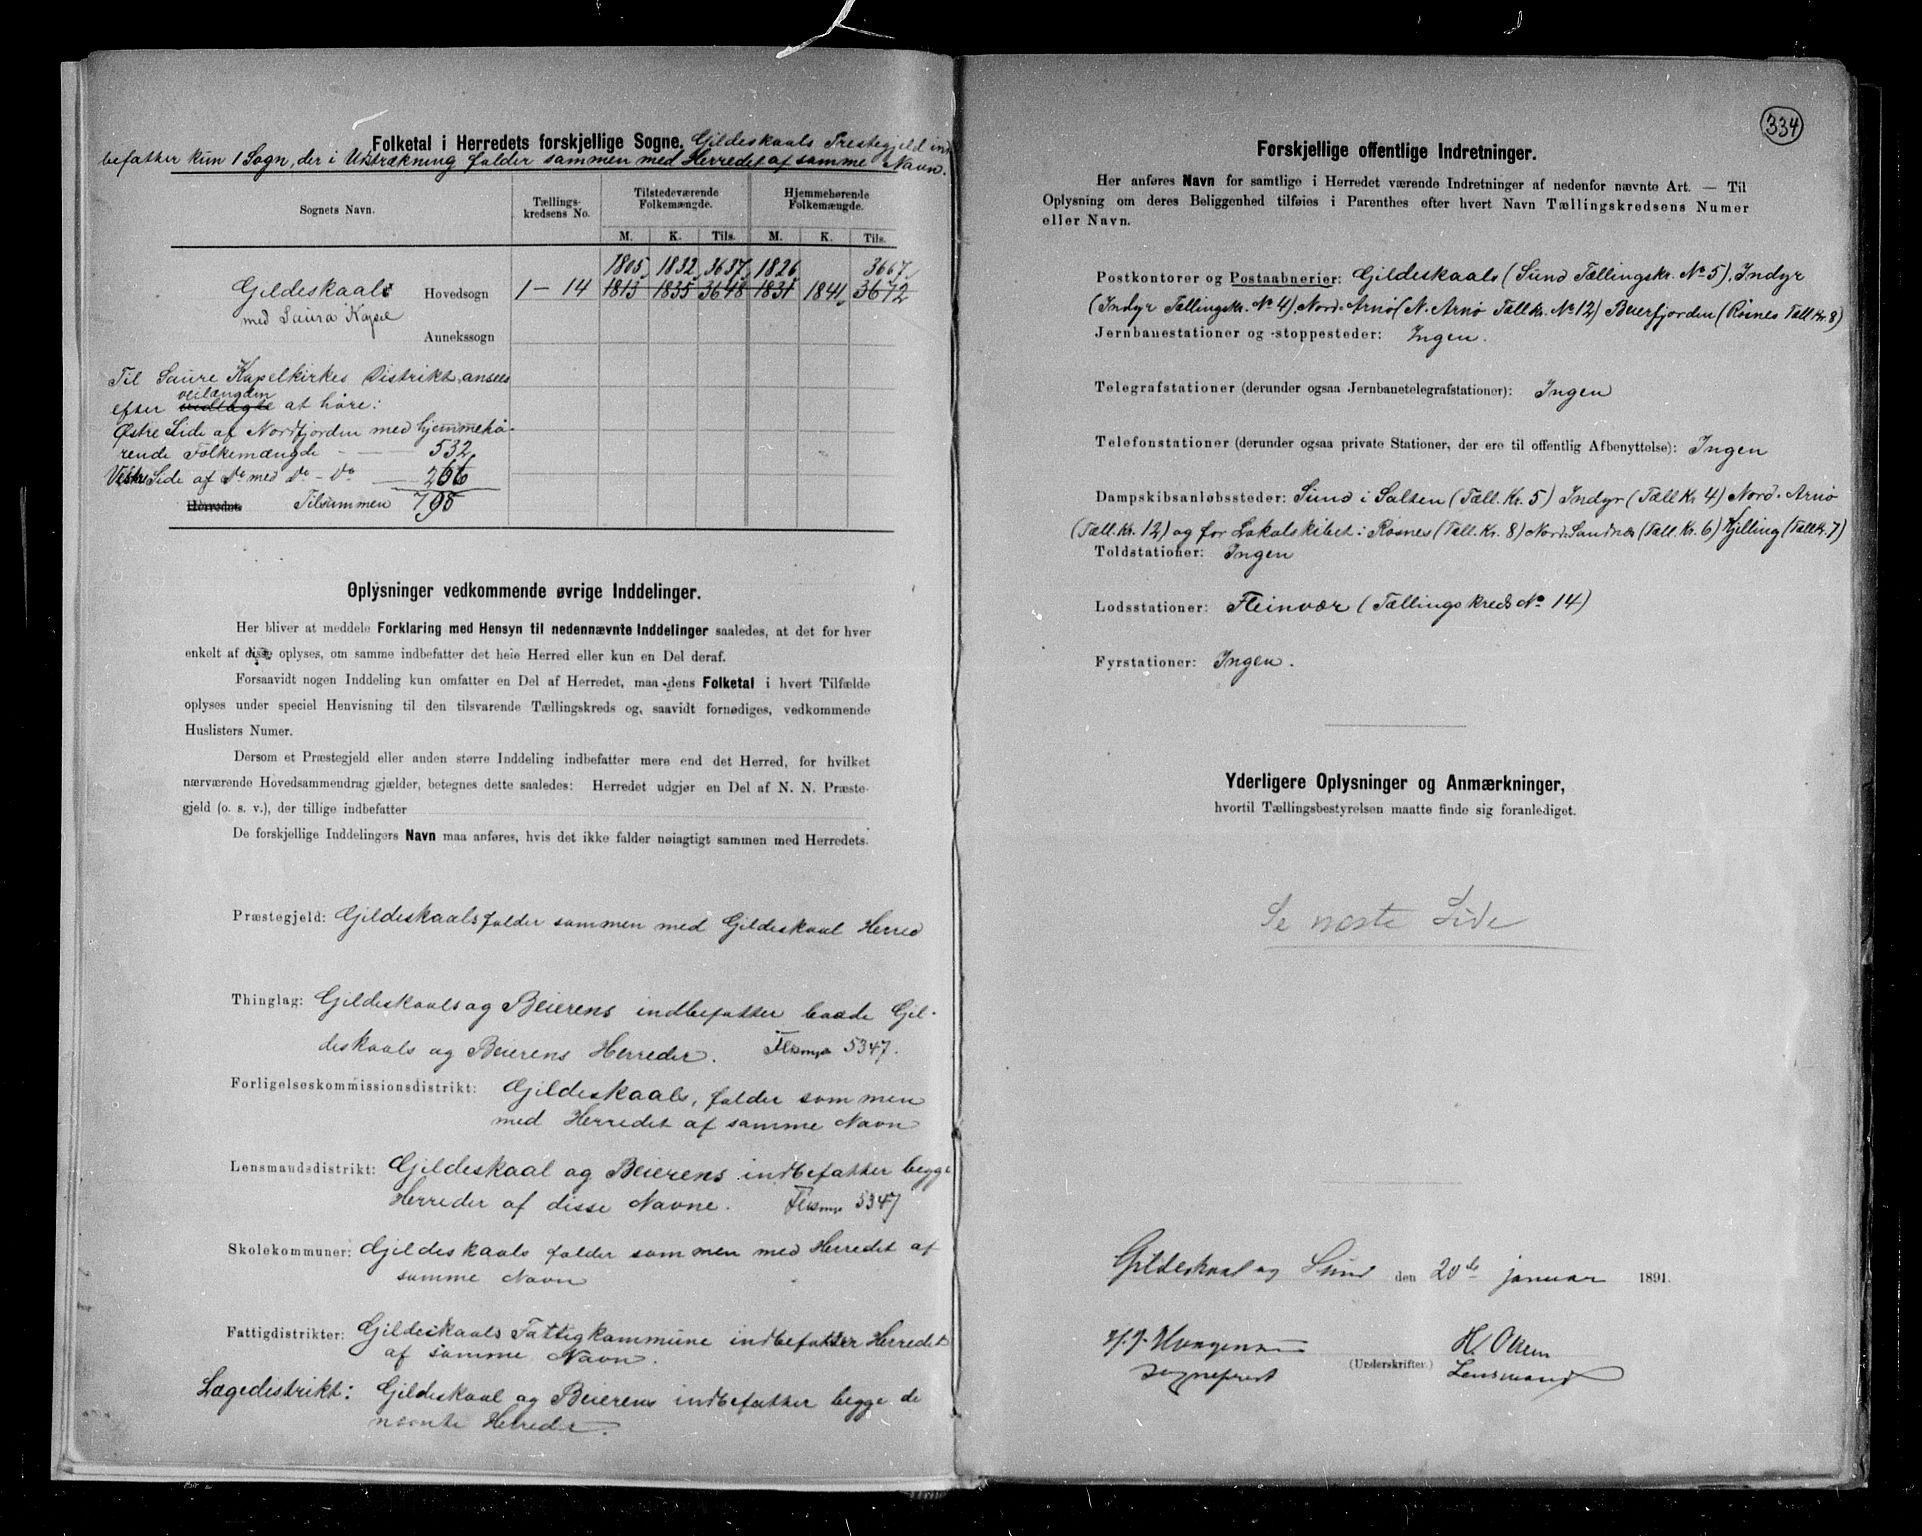 Folketal i Herredets forskjellige Sogne. Gildeskaals Prestegjeld ind
befatter kun 1 Sogn, der i Udstrækning falder sammen med Herredet af samme Navn.
Sognets Navn. Tællings- Tilstedeværende Hjemmehørende
kredsens No. Folkemængde. Folkemængde.
M. K. Tils. M. K. Tils.
1805, 1832, 3637, 1826, 3667,
Gildeskaals Hovedsogn 1 – 14 1813 1835 3648 1831 1841, 3672
med Saura Kapel
Annekssogn
Til Saure Kapelkirkes Distrikt ansees
veilængden
efter vedlagte at høre:
Østre Side af Nordfjorden med hjemmehø-
rende Folkemængde - — 532
Vestre Side af Do med Do - Do — 266
Herredet. Tilsummen 798
Oplysninger vedkommende øvrige Inddelinger.
Her bliver at meddele Forklaring med Hensyn til nedennævnte Inddelinger saaledes, at det for hver
enkelt af disse oplyses, om samme indbefatter det hele Herred eller kun en Del deraf.
Forsaavidt nogen Inddeling kun omfatter en Del af Herredet, maa dens Folketal i hvert Tilfælde
oplyses under speciel Henvisning til den tilsvarende Tællingskreds og, saavidt fornødiges, vedkommende
Huslisters Numer.
Dersom et Præstegjeld eller anden større Inddeling indbefatter mere end det Herred, for hvilket
nærværende Hovedsammendrag gjælder, betegnes dette saaledes: Herredet udgjør en Del af N. N. Præste-
gjeld (o. s. v.), der tillige indbefatter
De forskjellige Inddelingers Navn maa anføres, hvis det ikke falder nøiagtigt sammen med Herredets.
Præstegjeld: Gildeskaals falder sammen med Gildeskaal Herred
Thinglag: Gildeskaals og Beierens indbefatter baade Gil-
deskaals og Beierens Herreder. Flkmgd 5347.
Forligelseskommissionsdistrikt: Gildeskaals, falder sammen
med Herredet af samme Navn
Lensmandsdistrikt: Gildeskaal og Beierens indbefatter begge
Herreder af disse Navne. 5347
Skolekommuner: Gildeskaals falder sammen med Herredet af
samme Navn
Fattigdistrikter: Gildeskaals Fattigkommune indbefatter Herredet
af samme Navn.
Lægedistrikt: Gildeskaal og Beierens indbefatter begge de
nævnte Herreder.
334
Forskjellige offentlige Indretninger.
Her anføres Navn for samtlige i Herredet værende Indretninger af nedenfor nævnte Art. — Til
Oplysning om deres Beliggenhed tilføies i Parenthes efter hvert Navn Tællingskredsens Numer
eller Navn.
Postkontorer og Postaabnerier: Gildeskaals (Sund Tællingskr. No 5), Indyr
(Indyr Tællingskr. No 4), Nord-Arnø (N. Arnø Tællkr. No 12) Beierfjorden (Rosnes Tællkr. 8)
Jernbanestationer og -stoppesteder: Ingen.
Telegrafstationer (derunder ogsaa Jernbanetelegrafstationer): Ingen
Telefonstationer (derunder ogsaa private Stationer, der ere til offentlig Afbenyttelse): Ingen
Dampskibsanløbssteder: Sund i Salten (Tæll. Kr. 5) Indyr (Tæll Kr 4) Nord-Arnø
(Tæll. Kr. 12) og for Lokalskibet: Rosnes (Tæll. Kr. 8) Nord-Sandnæs (Tæll. Kr. 6) Kjelling (Tællkr. 7)
Toldstationer: Ingen
Lodsstationer: Fleinvær (Tællingskreds No 14)
Fyrstationer: Ingen.
Yderligere Oplysninger og Anmærkninger,
hvortil Tællingsbestyrelsen maatte finde sig foranlediget.
Se næste Side
Gildeskaal og Sund den 20de januar 1891.
H. Olsen
(Underskrifter.)
Sogneprest Lensmand